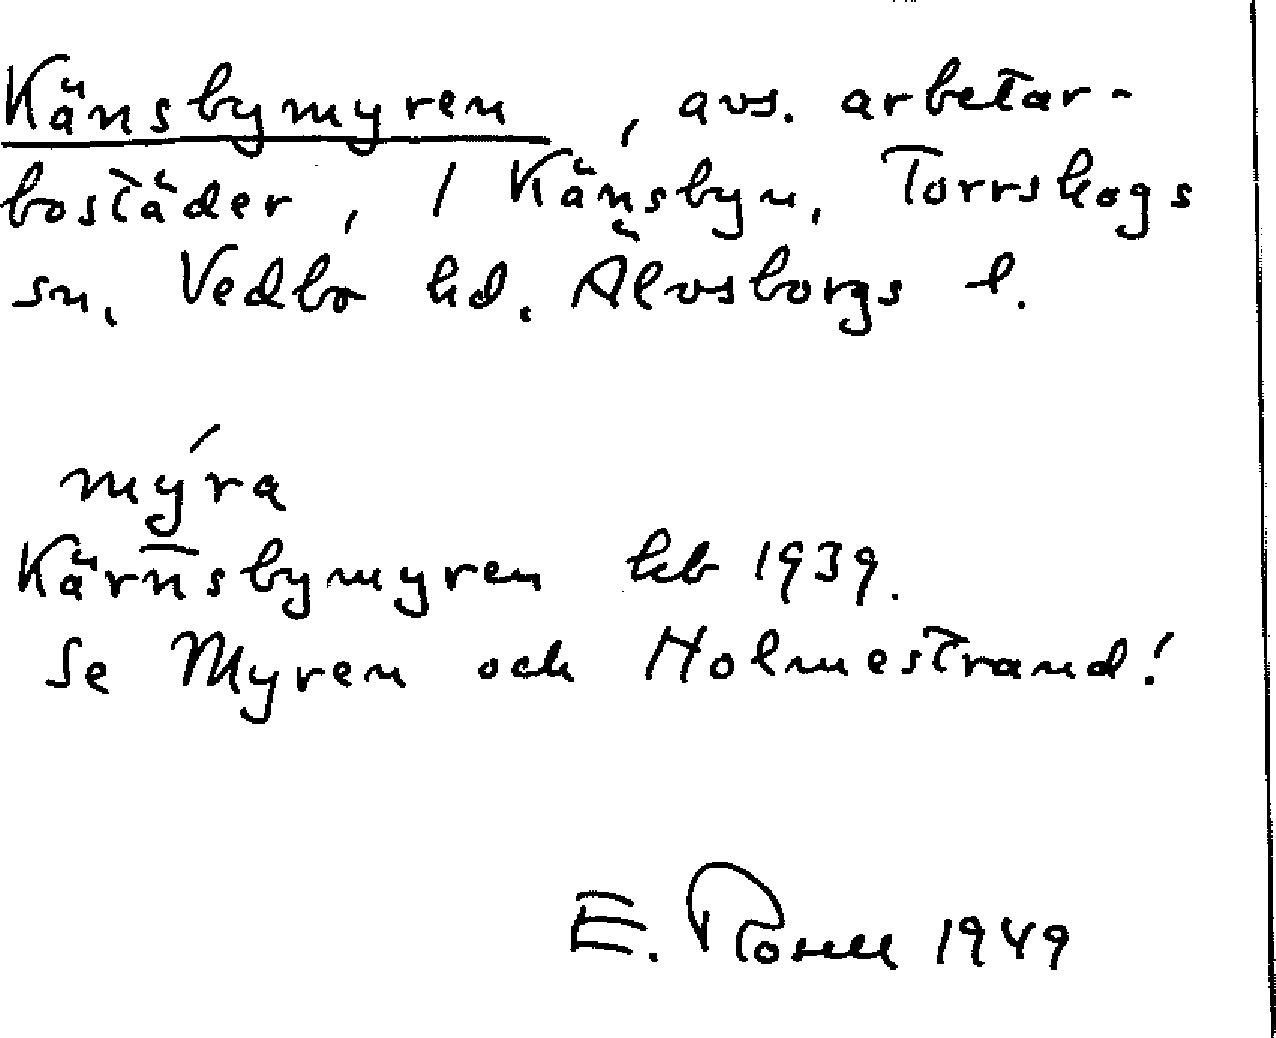 Känsbymyren, avs. arbetar-
bostäder, / Känsbyn, Torrskogs
sn, Vedbo hd. Älvsborgs l.
mýra
Kärnsbymyren hb 1939.
Se Myren och Holmestrand!
E. Rosell 1949